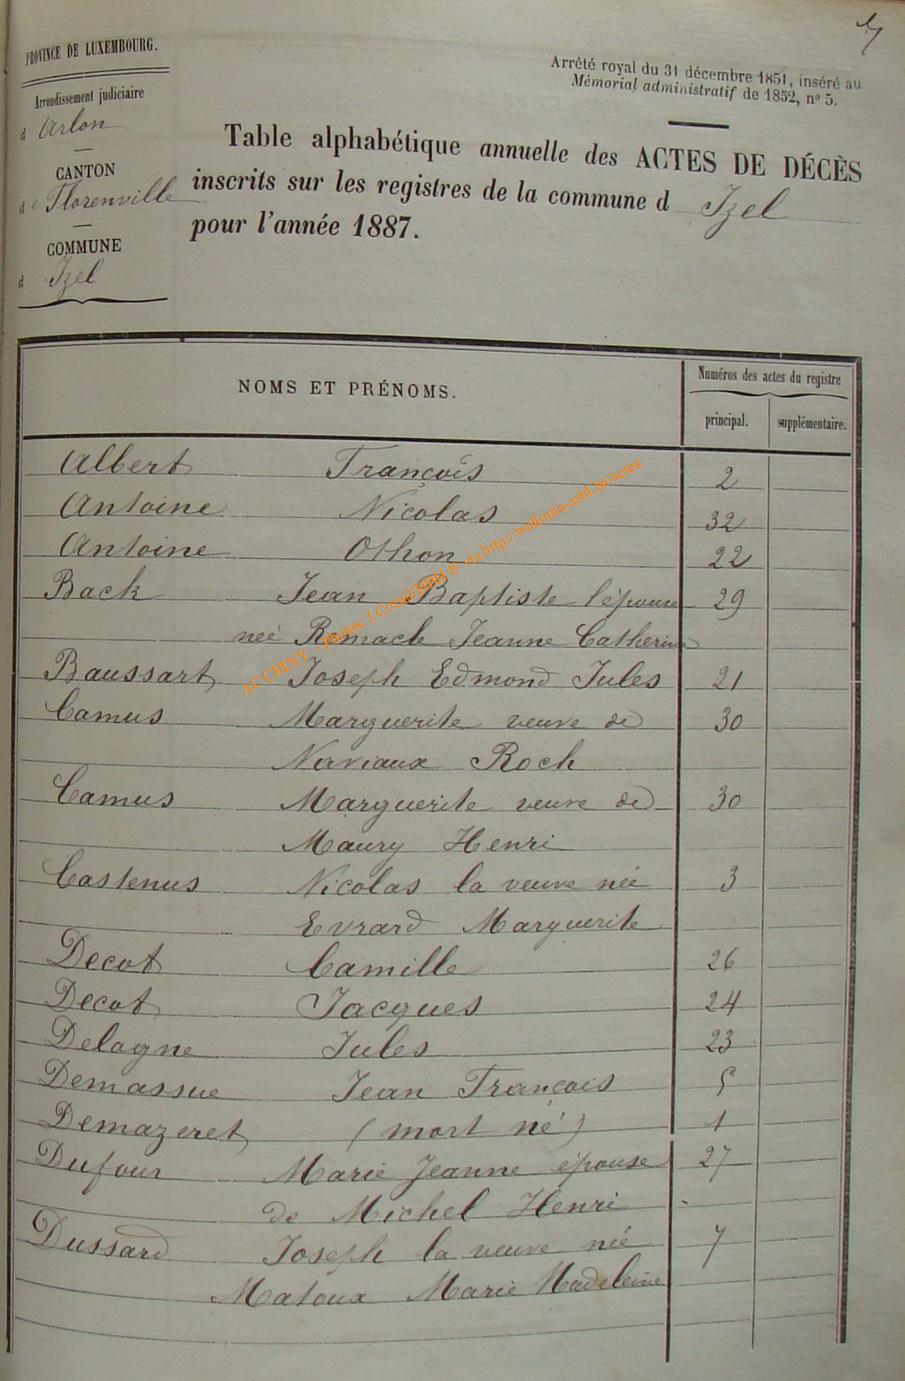 PROVINCE DE LUXEMBOURG.
Arrondissement judiciaire
d Arlon
CANTON
de Florenville
COMMUNE
d Izel
Arrêté royal du 31 décembre 1851, inséré au
Mémorial administratif de 1852, nº 5.
Table alphabétique annuelle des ACTES DE DÉCÈS
inscrits sur les registres de la commune d Izel
pour l'année 1887.
NOMS ET PRÉNOMS.
Numéros des actes du registre
principal. supplémentaire.
Albert François 2
Antoine Nicolas 32
Antoine Othon 22
Back Jean Baptiste l'épouse 29
neé Remacle Jeanne Catherine
Baussart Joseph Edmond Jules 21
Camus Marguerite veuve de 30
Naviaux Roch
Camus Marguerite veuve de 30
Maury Henri
Castenus Nicolas la veuve née 3
Evrard Marguerite
Decot Camille 26
Decot Jacques 24
Delogne Jules 23
Demassue Jean François 5
Demazeret (mort né) 1
Dufour Marie Jeanne épouse 27
de Michel Henri
Dussard Joseph la veuve née 7
Matoux Marie Madeleine
via http://wallonia-asbl.be/actes